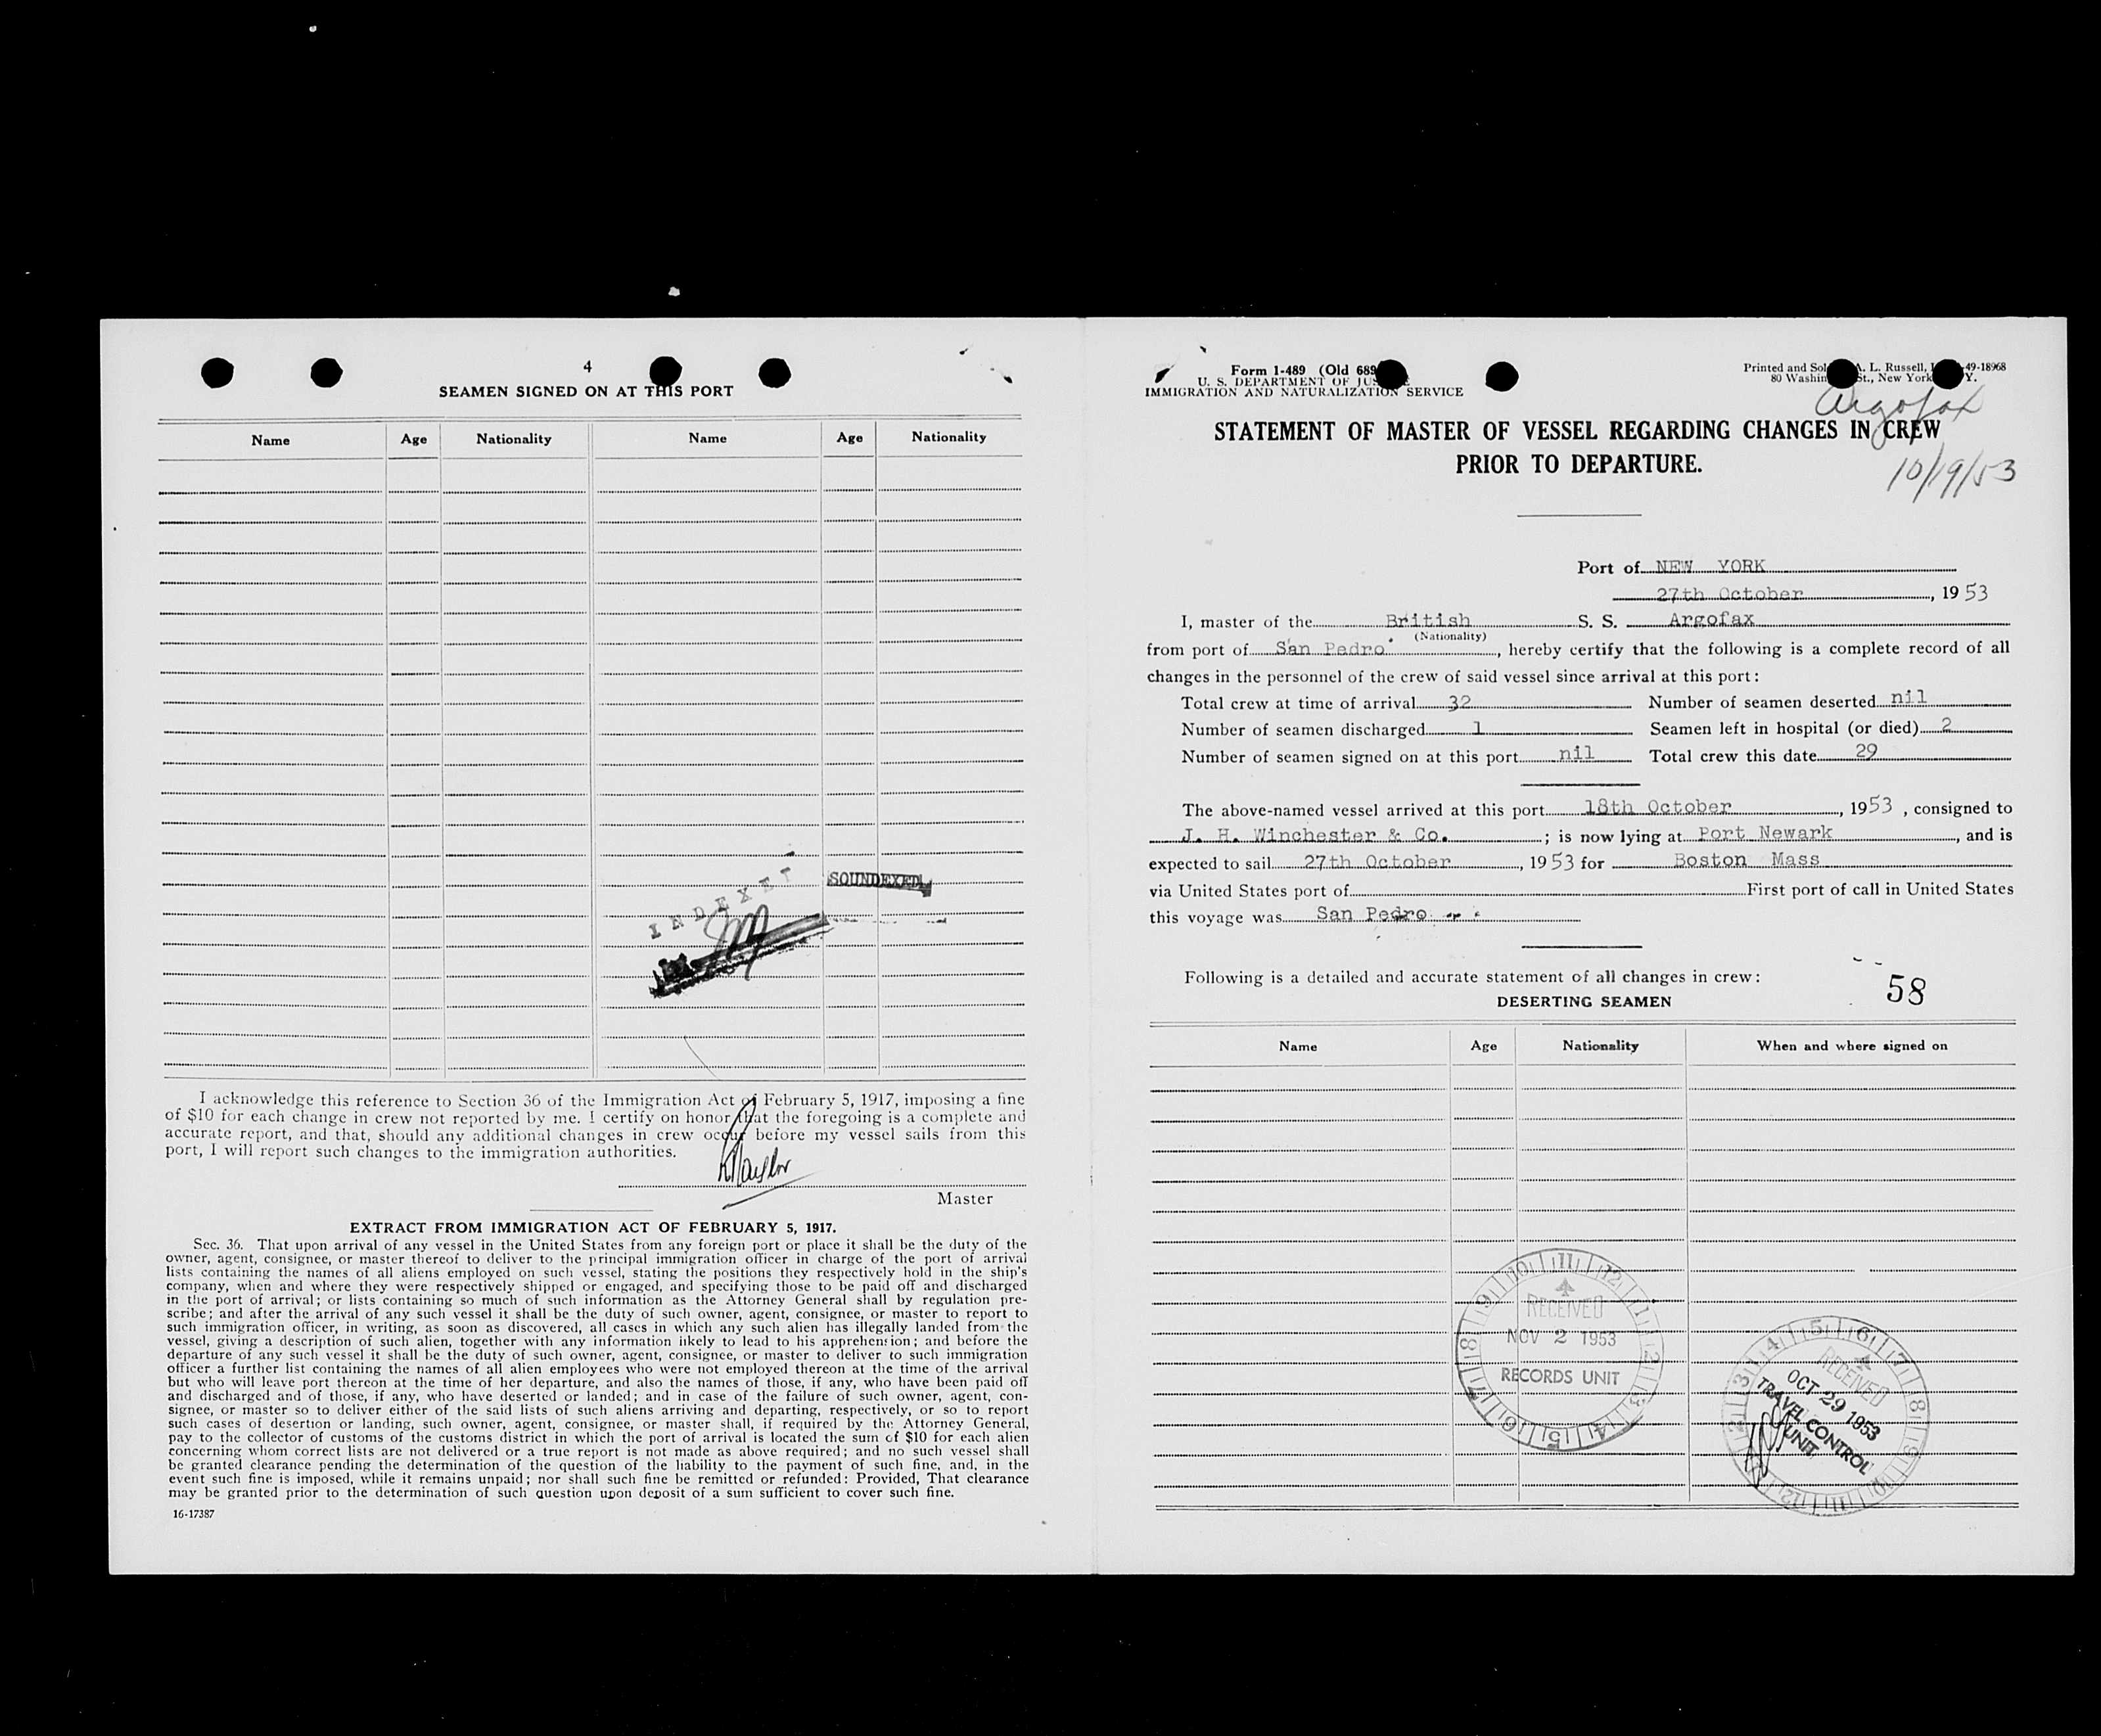 4
SEAMEN SIGNED ON AT THIS PORT
Name Age Nationality Name Age Nationality
SOUNDEXED
INDEXET
I acknowledge this reference to Section 36 of the Immigration Act of February 5, 1917, imposing a fine
of $10 for each change in crew not reported by me. I certify on honor that the foregoing is a complete and
accurate report, and that, should any additional changes in crew occur before my vessel sails from this
port, I will report such changes to the immigration authorities.
Master
EXTRACT FROM IMMIGRATION ACT OF FEBRUARY 5, 1917.
Sec. 36. That upon arrival of any vessel in the United States from any foreign port or place it shall be the duty of the
owner, agent, consignee, or master thereof to deliver to the principal immigration officer in charge of the port of arrival
lists containing the names of all aliens employed on such vessel, stating the positions they respectively hold in the ship's
company, when and where they were respectively shipped or engaged, and specifying those to be paid off and discharged
in the port of arrival; or lists containing so much of such information as the Attorney General shall by regulation pre-
scribe; and after the arrival of any such vessel it shall be the duty of such owner, agent, consignee, or master to report to
such immigration officer, in writing, as soon as discovered, all cases in which any such alien has illegally landed from the
vessel, giving a description of such alien, together with any information likely to lead to his apprehension; and before the
departure of any such vessel it shall be the duty of such owner, agent, consignee, or master to deliver to such immigration
officer a further list containing the names of all alien employees who were not employed thereon at the time of the arrival
but who will leave port thereon at the time of her departure, and also the names of those, if any, who have been paid off
and discharged and of those, if any, who have deserted or landed; and in case of the failure of such owner, agent, con-
signee, or master so to deliver either of the said lists of such aliens arriving and departing, respectively, or so to report
such cases of desertion or landing, such owner, agent, consignee, or master shall, if required by the Attorney General,
pay to the collector of customs of the customs district in which the port of arrival is located the sum of $10 for each alien
concerning whom correct lists are not delivered or a true report is not made as above required; and no such vessel shall
be granted clearance pending the determination of the question of the liability to the payment of such fine, and, in the
event such fine is imposed, while it remains unpaid; nor shall such fine be remitted or refunded: Provided, That clearance
may be granted prior to the determination of such question upon deposit of a sum sufficient to cover such fine.
16-17387
Form 1-489 (Old 689
U. S. DEPARTMENT OF JUS E
IMMIGRATION AND NATURALIZATION SERVICE
Printed and Sol A. L. Russell, 49-18968
80 Washin St., New York Y.
Argofax
STATEMENT OF MASTER OF VESSEL REGARDING CHANGES IN CREW
PRIOR TO DEPARTURE.
10/19/53
Port of NEW YORK
27th October, 1953
I, master of the British S. S. Argofax
(Nationality)
from port of San Pedro, hereby certify that the following is a complete record of all
changes in the personnel of the crew of said vessel since arrival at this port:
Total crew at time of arrival 32 Number of seamen deserted nil
Number of seamen discharged 1 Seamen left in hospital (or died) 2
Number of seamen signed on at this port nil Total crew this date 29
The above-named vessel arrived at this port 18th October, 1953, consigned to
J. H. Winchester & Co.; is now lying at Port Newark, and is
expected to sail 27th October, 1953 for Boston Mass
via United States port of First port of call in United States
this voyage was San Pedro
Following is a detailed and accurate statement of all changes in crew:
58
DESERTING SEAMEN
Name Age Nationality When and where signed on
RECEIVED
NOV 2 1953
RECORDS UNIT
RECEIVED
OCT 29 1953
TRAVEL CONTROL
UNIT